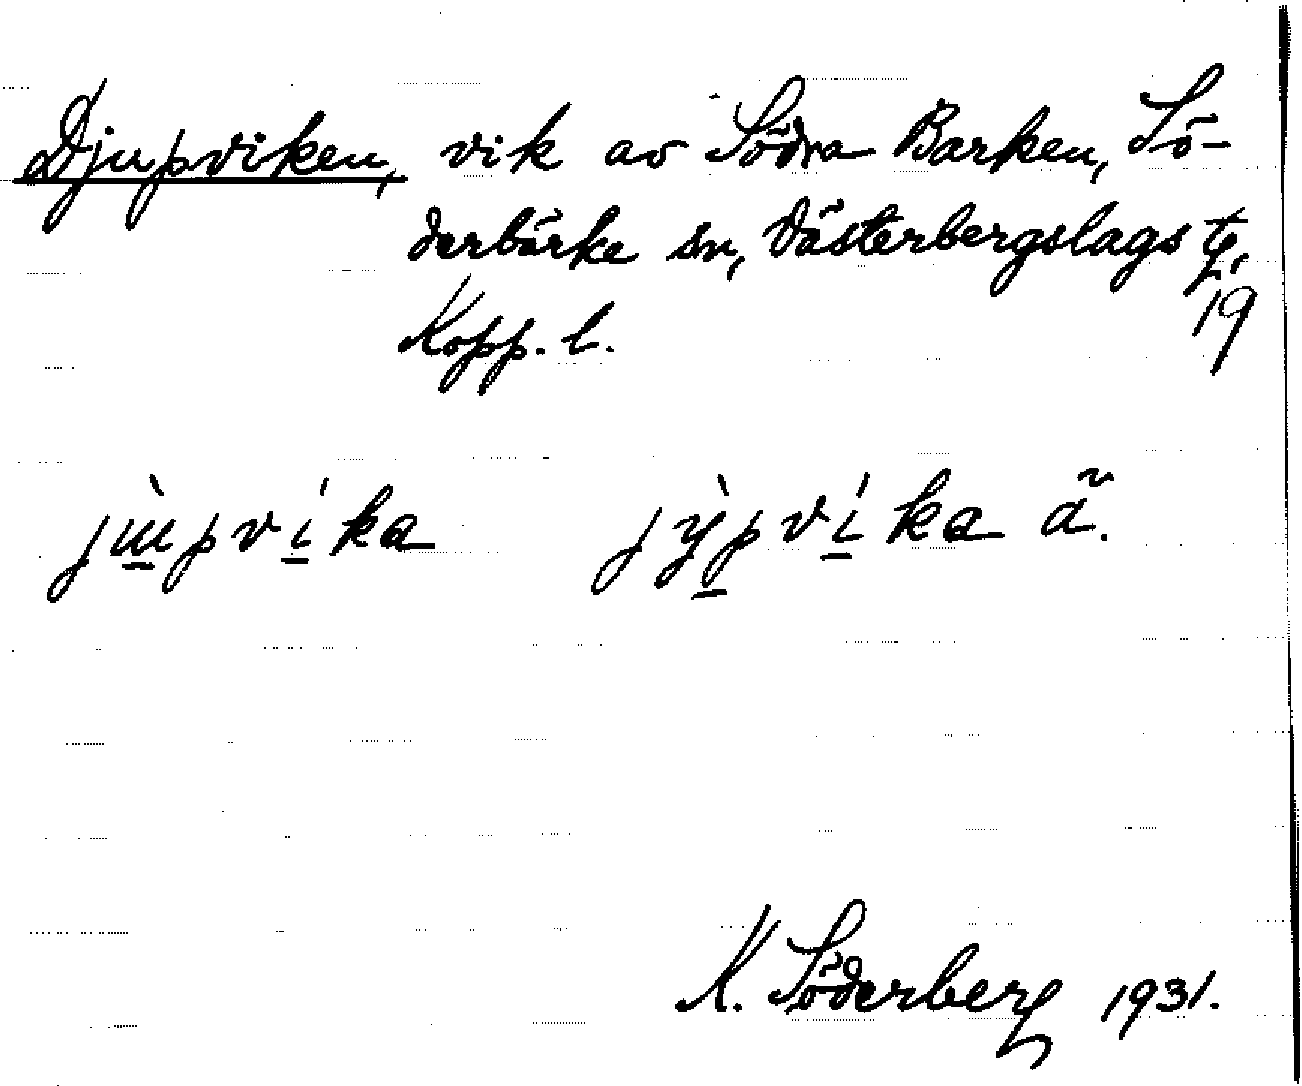 Djupviken, vik av Södra Barken, Sö-
derbärke sn, Västerbergslags tg,
Kopp. l. 19
jɯ̀pvíka jỳpvíka ä̃.
K. Söderberg 1931.